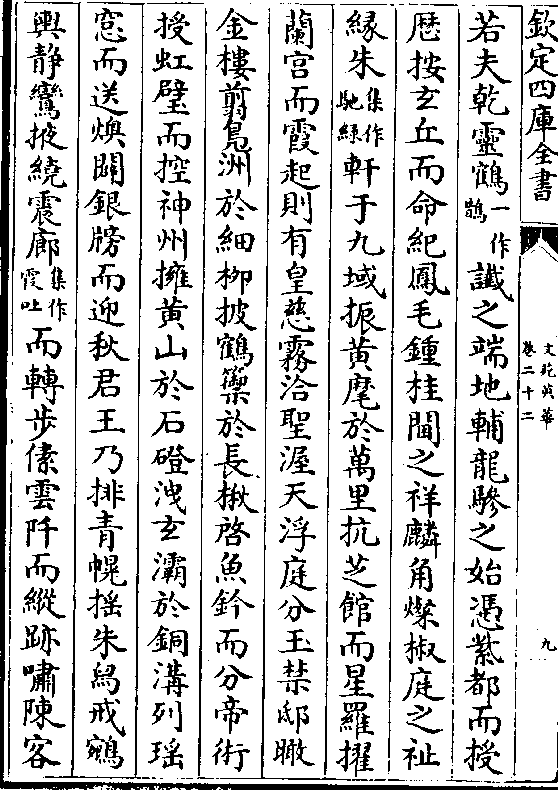 欽定四庫全書
文苑英華
卷二十二
九
若夫乾靈鶴一作鵲讖之端地輔龍驂之始憑紫都而授
歴按玄丘而命紀鳳毛鍾桂閫之祥麟角燦椒庭之祉
縁朱集作馳緑軒于九域振黄麾於萬里抗芝館而星羅擢
蘭宫而霞起則有皇慈霧洽聖渥天浮庭分玉禁邸瞰
金樓翦鳬洲於細柳披鶴籞於長楸啓魚鈐而分帝術
授虹璧而控神州擁黄山於石磴洩玄灞於銅溝列瑶
窓而送燠闢銀牓而迎秋君王乃排青幌揺朱舄戒鵷
輿静鸞掖繞震廊集作霞吐而轉步傃雲阡而縱跡嘯陳客